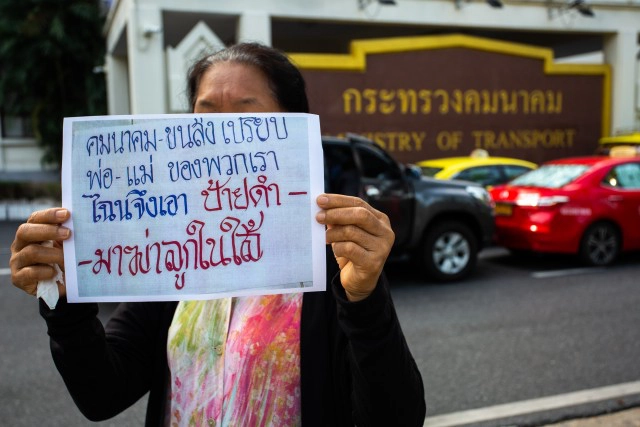 คมนาคม-ขนส่ง เปรียบ
พ่อ-แม่ ของพวกเรา
ไฉนจึงเอา ป้ายดำ -
-มาฆ่าลูกในไส้
กระทรวงคมนาคม
NISTRY OF TRANSPORT